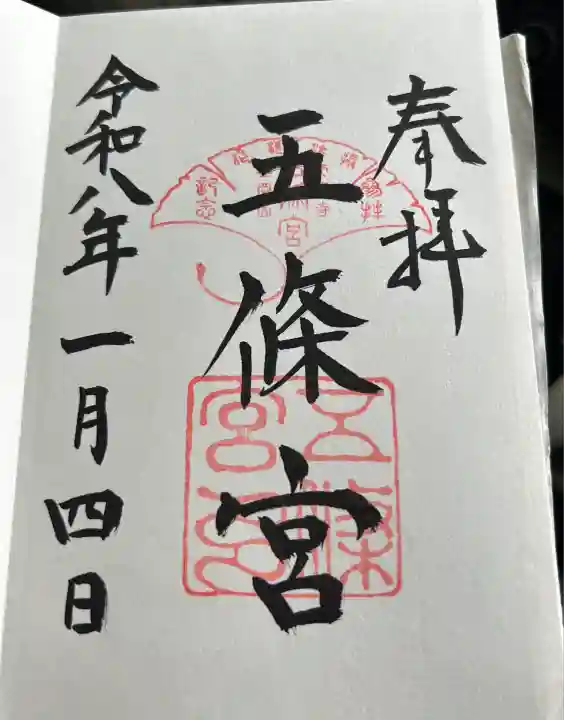 奉拝
五條宮
令和八年一月四日
五條宮印